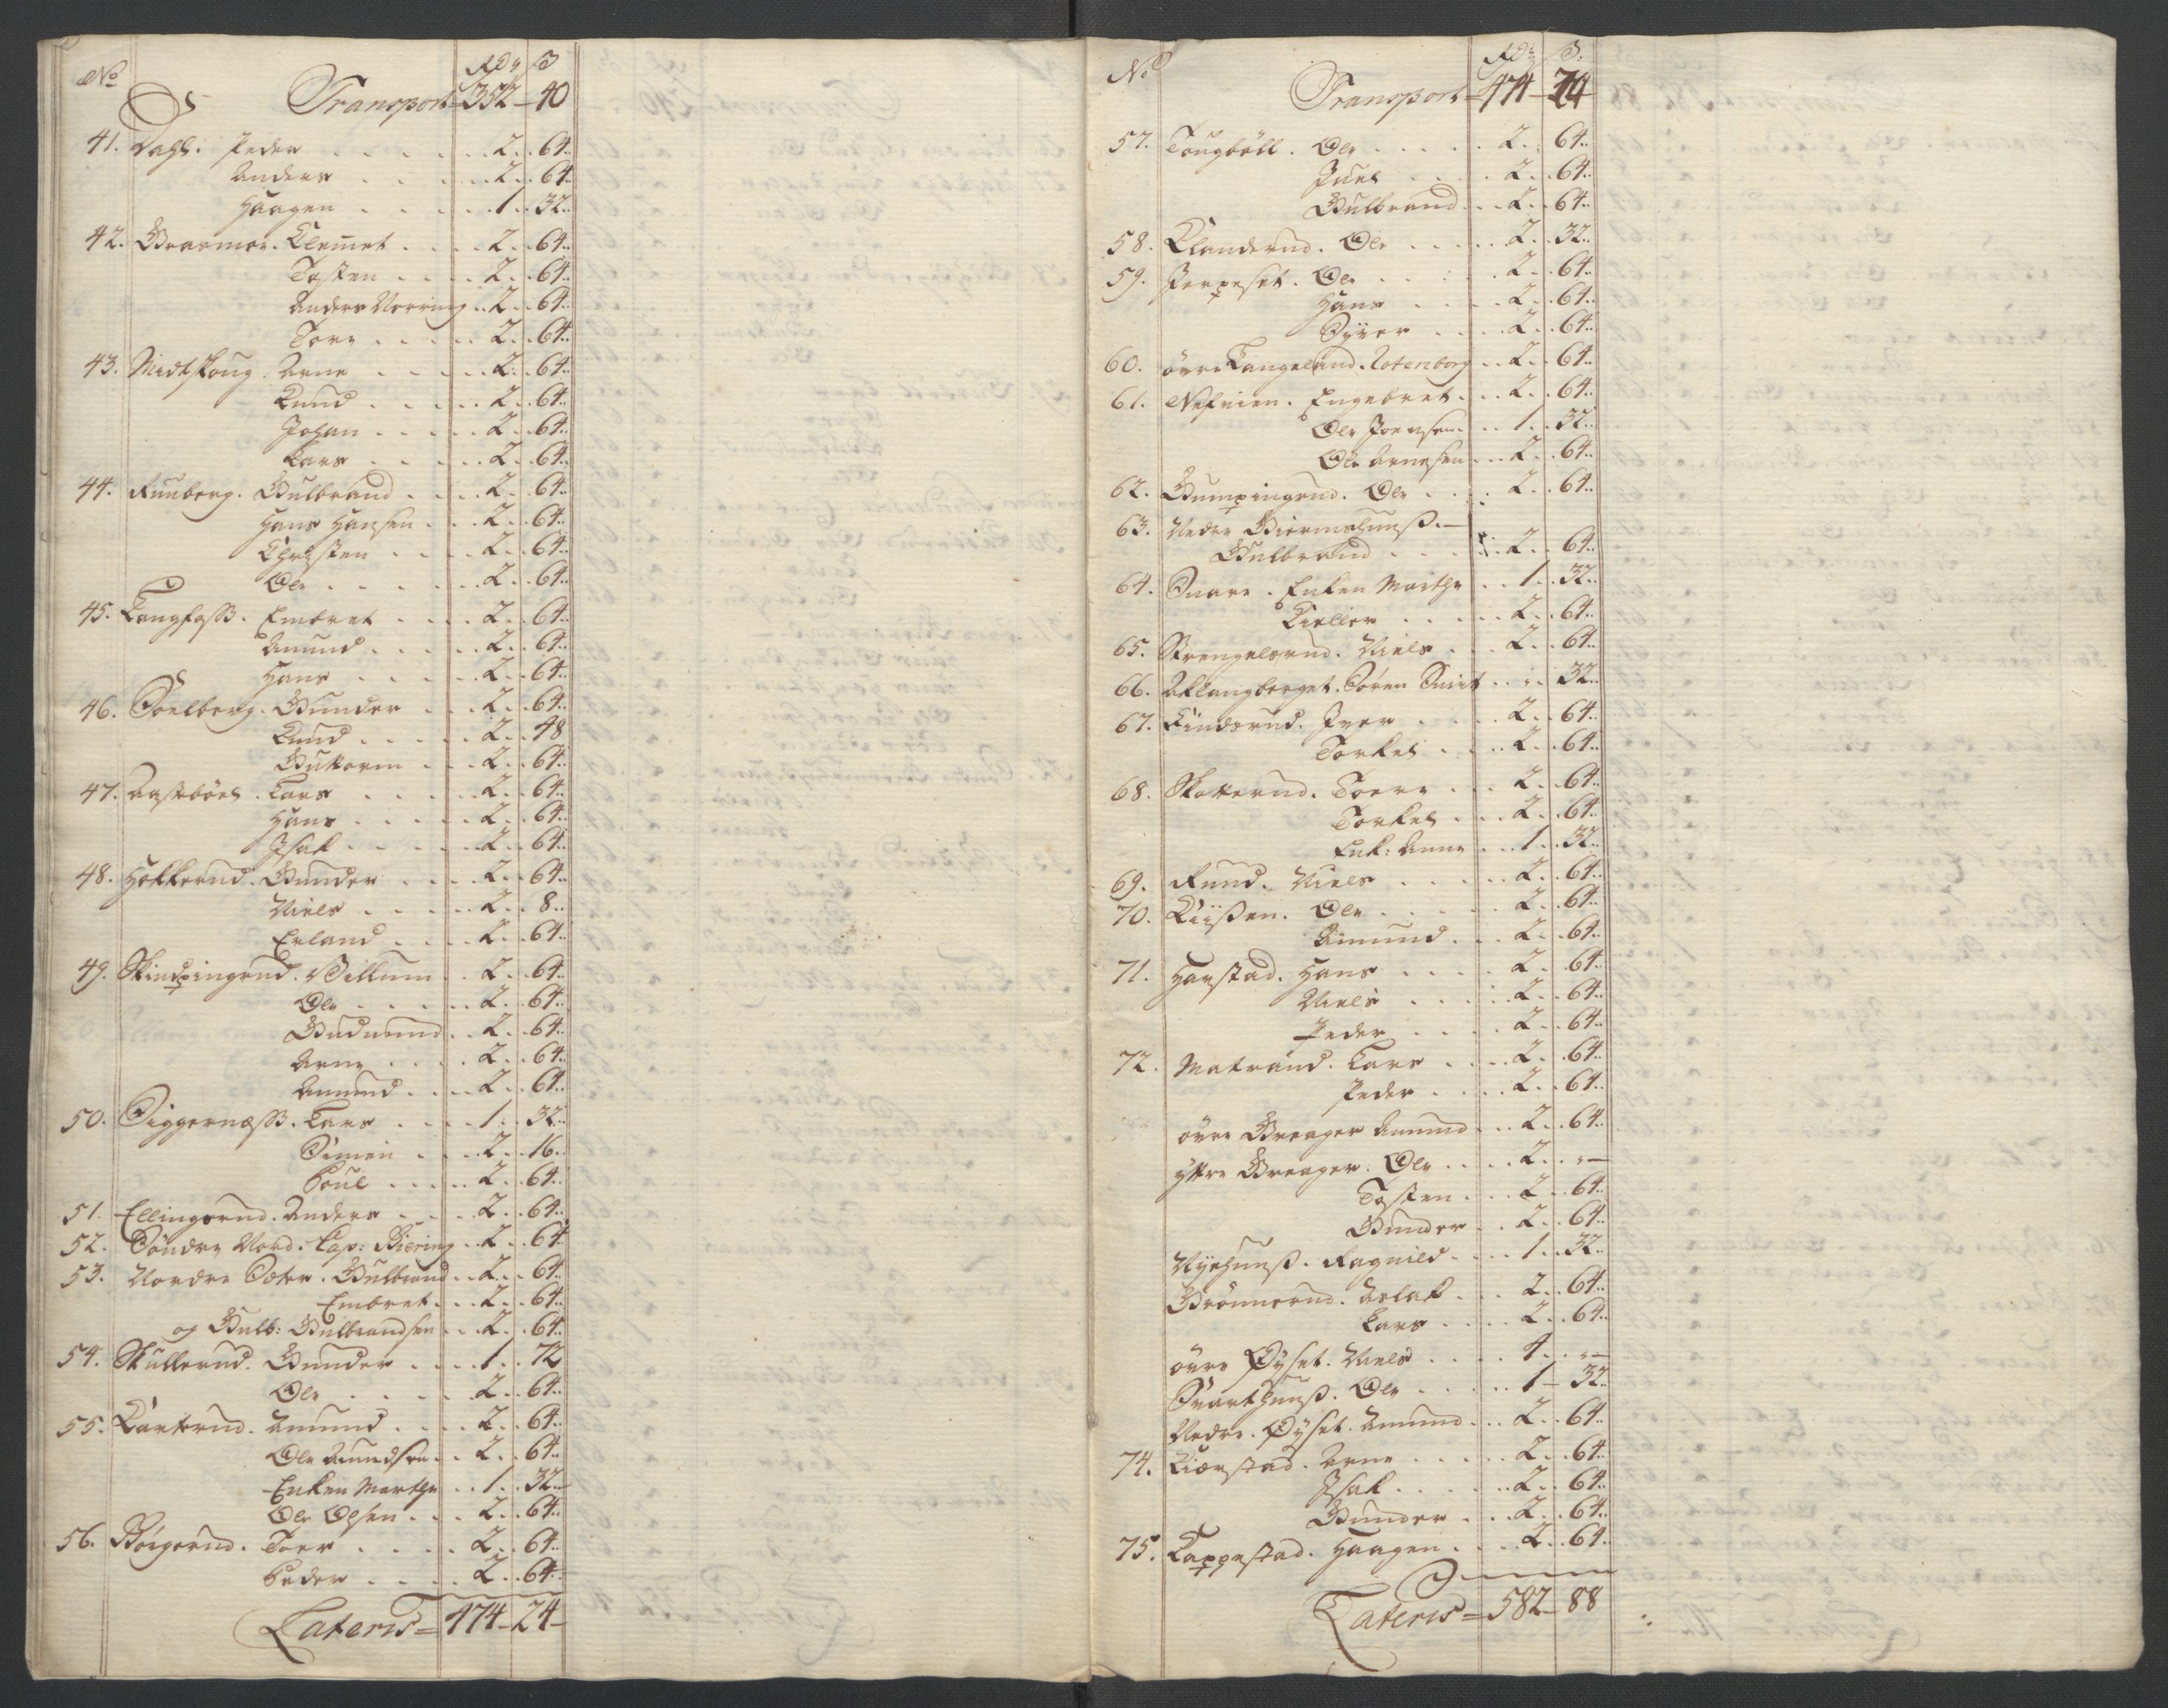 No Rdr ß
Transport = 352 - 40
41. Dahl. Peder 2. 64.
Anders 2. 64.
Haagen 1. 32.
42. Graamoe. Clemet 2. 64.
Tosten 2. 64.
Anders Norring 2. 64.
Tore 2. 64.
43. Midtskoug. Arne 2. 64.
Knud 2. 64.
Johan 2. 64.
Lars 2. 64.
44. Ruuberg. Gulbrand 2. 64.
Hans Hansen 2. 64.
Christen 2. 64.
Ole 2. 64.
45. Langfoss. Embret 2. 64.
Amund 2. 64.
Hans 2. 64.
46. Soelberg. Gunder 2. 64.
Knud 2. 48
Guttorm 2. 64.
47. Aastebøel. Lars 2. 64.
Hans 2. 64.
Isak 2. 64.
48. Hokkerud. Gunder 2. 64.
Niels 2. 8.
Erland 2. 64.
49. Skindpingrud. Villum 2. 64.
Ole 2. 64.
Gudmund 2. 64.
Arne 2. 64.
Amund 2. 64.
50. Siggernæss. Lars 1. 32.
Simen 2. 16.
Poul 2. 64.
51. Ellingsrud. Anders 2. 64.
52. Søndre Nord. Cap: Biering 2. 64
53. Nordre Sæter. Gulbrand 2. 64.
Embret 2. 64.
og Gulb: Gulbrandsen 2. 64.
54. Skullerud. Gunder 1. 72
Ole 2. 64.
55. Karterud. Amund 2. 64.
Ole Amundsen 2. 64.
Enken Marthe 1. 32.
Ole Olsen 2. 64.
56. Børgerud. Toer 2. 64.
Peder 2. 64.
Lateris = 474 - 24 -
No Rdr ß
Transport = 474 - 24
57. Tougbøll. Ole 2. 64.
Juel 2. 64.
Gulbrand 2. 64.
58. Klanderud. Ole 2. 32.
59. Perpeset. Ole 2. 64.
Hans 2. 64.
Syver 2. 64.
60. øvre Langeland. Rotenborg 2. 64.
61. Næfvien. Engebret 2. 64.
Ole Joensen 1. 32.
Ole Arnesen 2. 64.
62. Gumpingrud. Ole 2. 64.
63. Nedre Biermshuus.
Gulbrand 2. 64.
64. Snare. Enken Marthe 1. 32.
Kieller 2. 64.
65. Strengelsrud. Niels 2. 64.
66. Aklangberget. Søren Smit 1. 32.
67. Lindsrud. Iver 2. 64.
Torkel 2. 64.
68. Skotterud. Toere 2. 64.
Torkel 2. 64.
Enk: Anne 1. 32.
69. Rund. Niels 2. 64.
70. Kiissen. Ole 2. 64.
Amund 2. 64.
71. Harstad. Hans 2. 64.
Niels 2. 64.
Peder 2. 64.
72. Matrand. Lars 2. 64.
Peder 2. 64.
øvre Breager Amund 2. 64.
yttre Breager. Ole 2. „ —
Tosten 2. 64.
Gunder 2. 64.
Nyehuus. Ragnild 1. 32.
Brønnerud. Aslak 2. 64.
Lars 2. 64.
øvre Øyset. Niels 1. „ —
Svarthuus. Ole 1 - 32.
Nedre. Øyset. Amund 2. 64.
74. Kiærstad. Arne 2. 64.
Isak 2. 64.
Gunder 2. 64.
75. Lappestad. Haagen 2. 64.
Lateris = 582 - 88